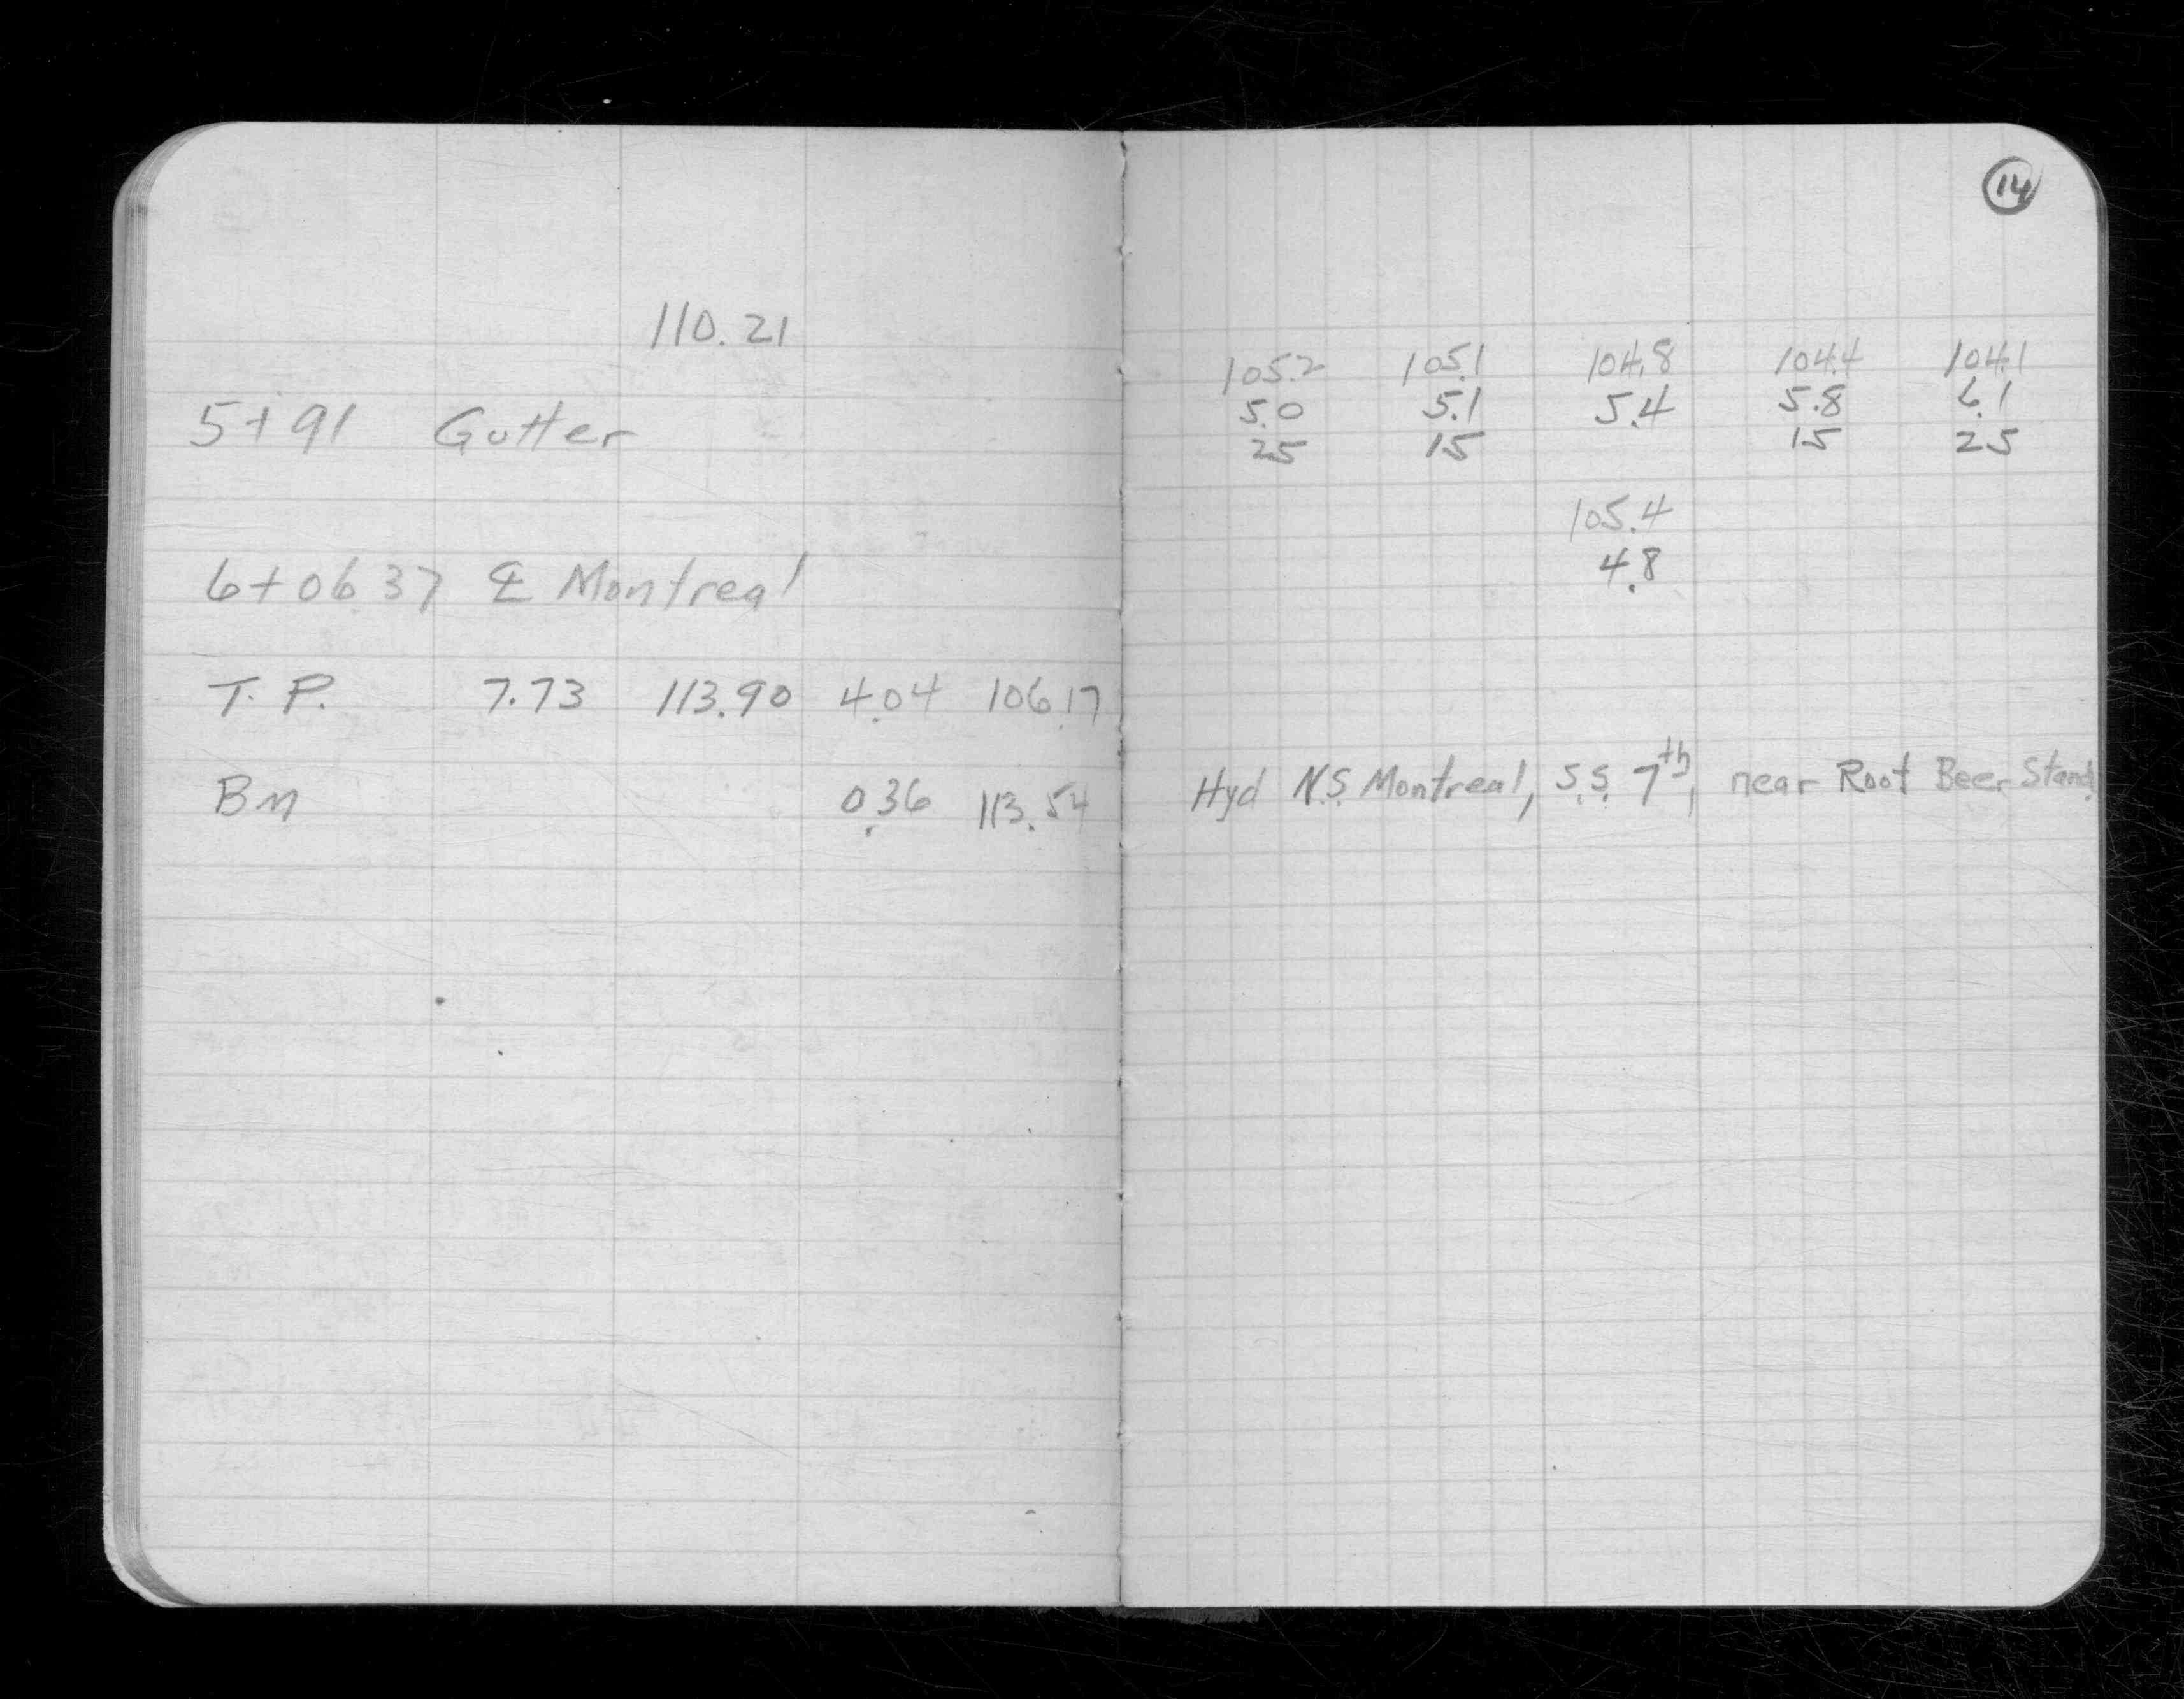 110.21
5+91 Gutter
6+06.37 ℄ Montreal
T. P. 7.73 113.90 4.04 106.17
BM 0.36 113.54
14
105.2 105.1 104.8 104.4 104.1
5.0 5.1 5.4 5.8 6.1
25 15 15 25
105.4
4.8
Hyd N.S. Montreal, S.S. 7th, near Root Beer Stand.